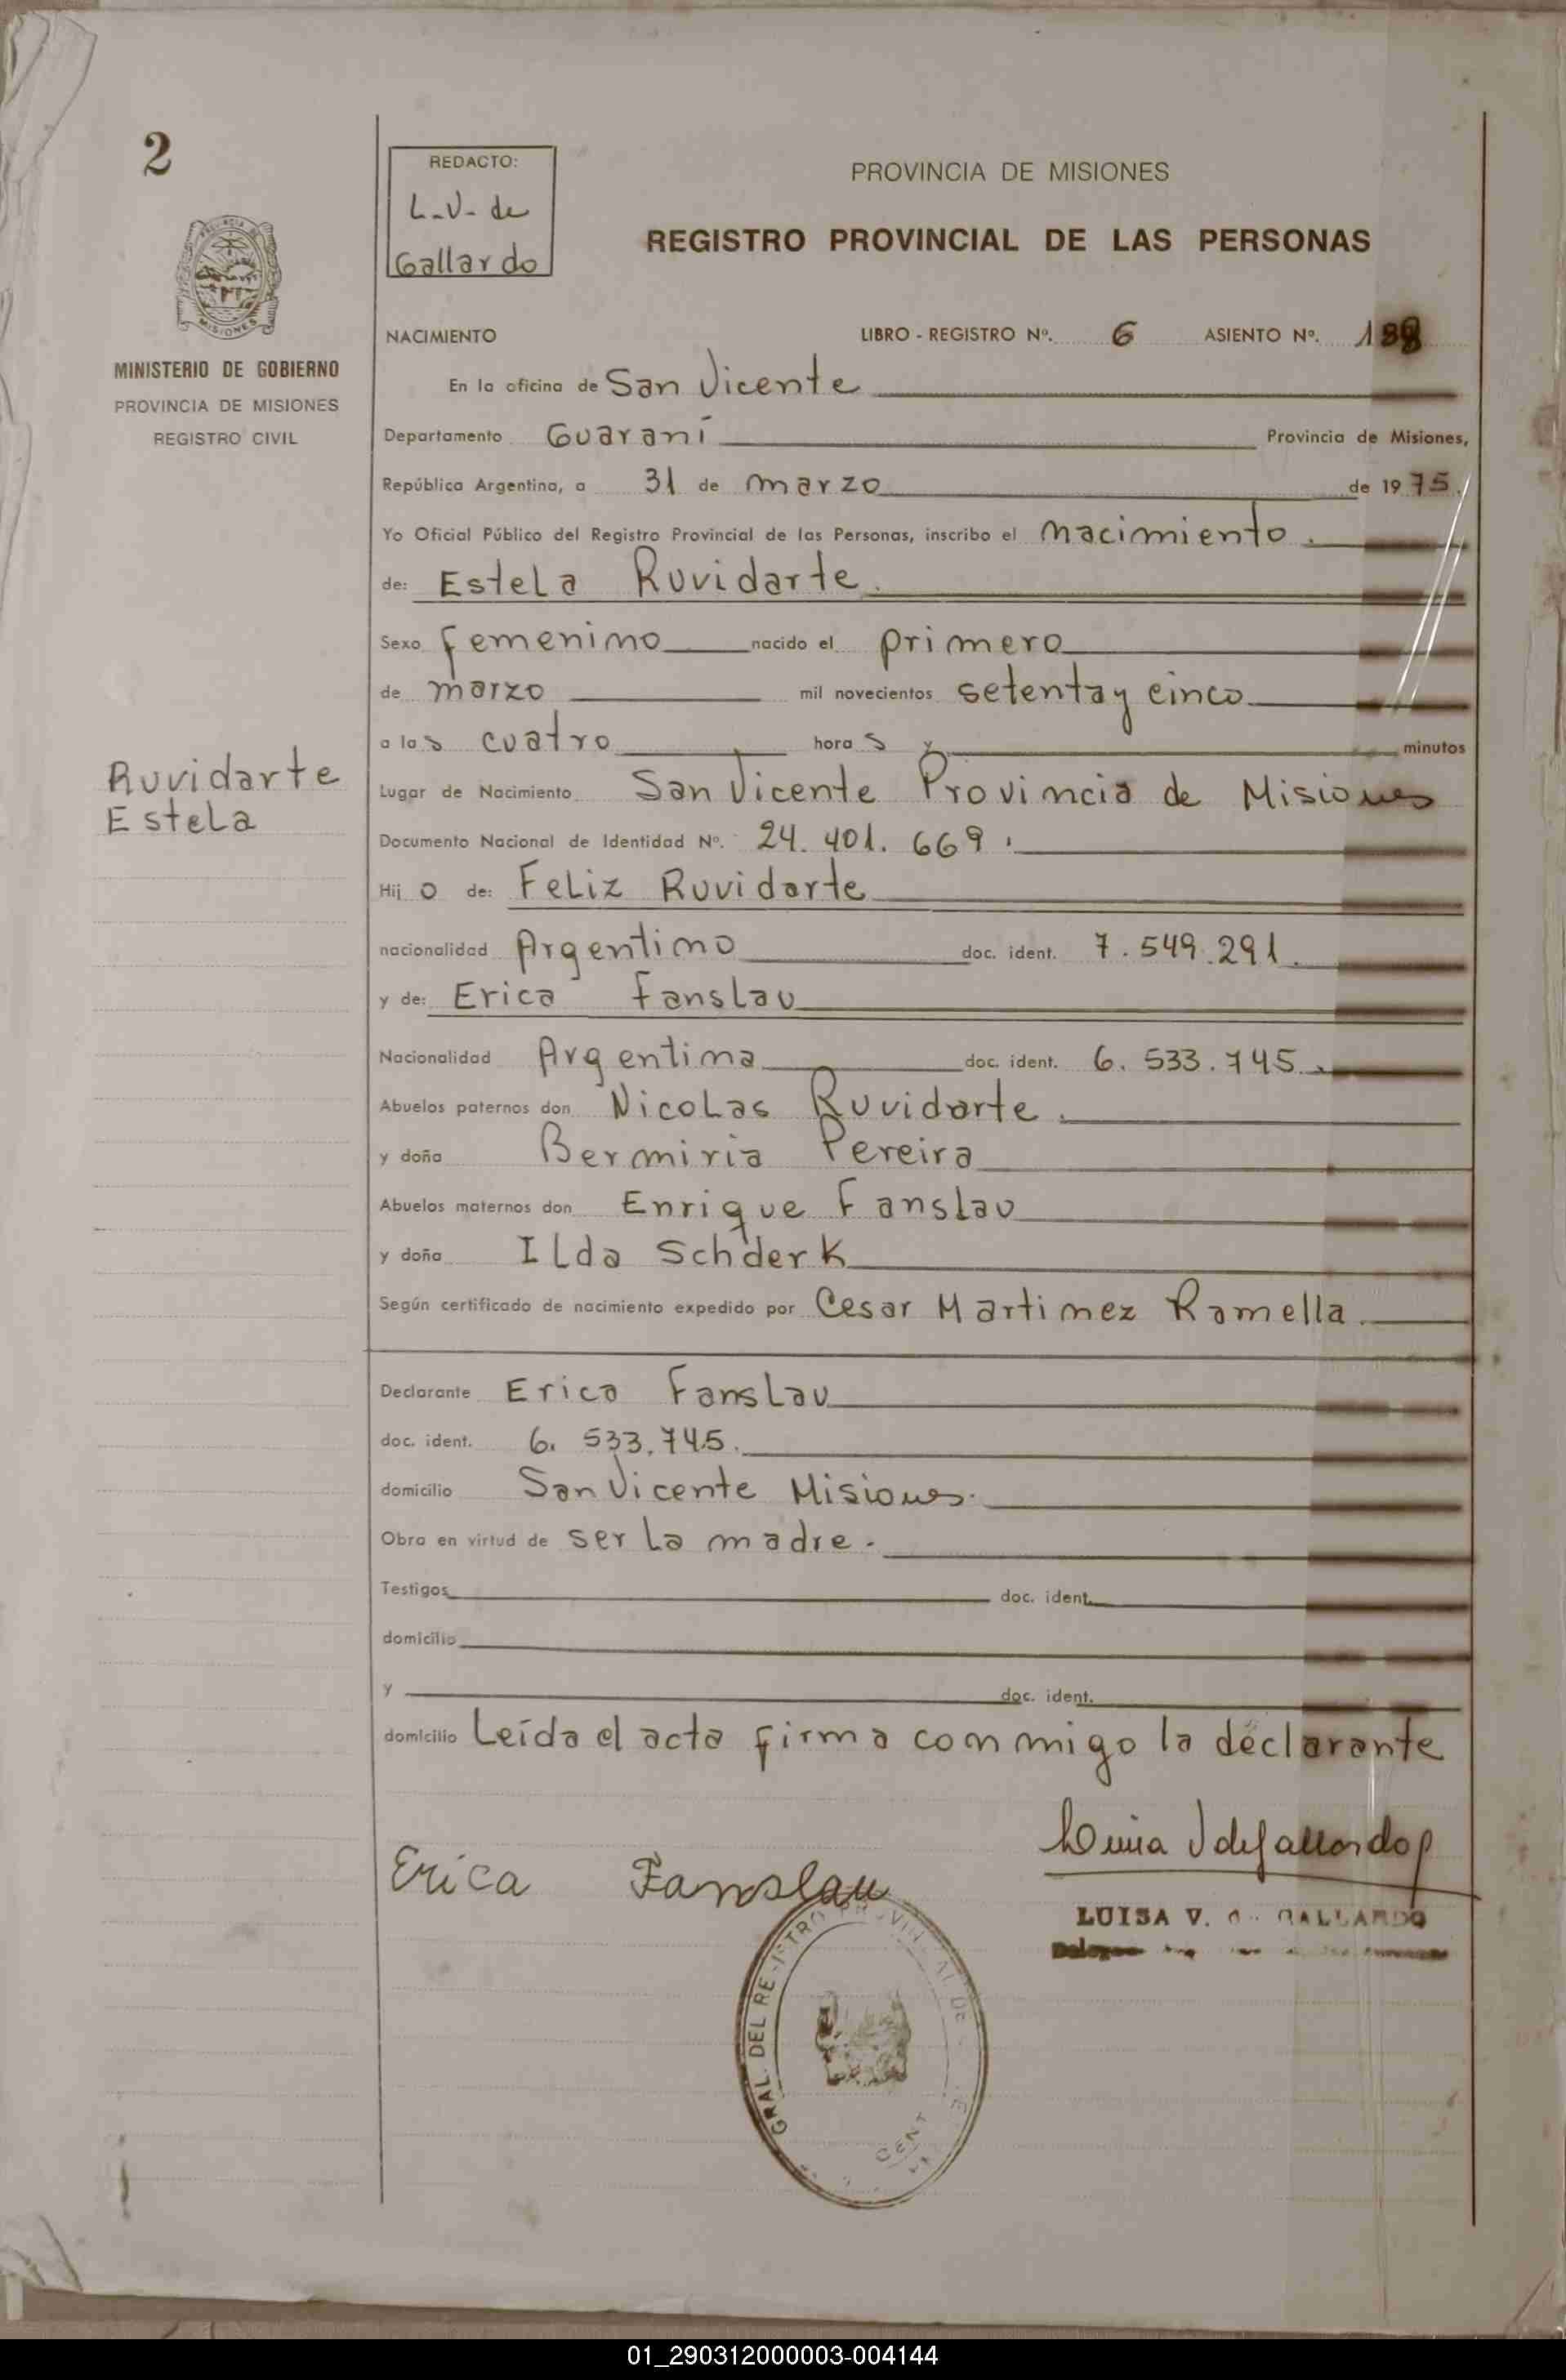 2
REDACTO:
L.V. de
Gallardo
PROVINCIA DE MISIONES
REGISTRO PROVINCIAL DE LAS PERSONAS
MISIONES
MINISTERIO DE GOBIERNO
PROVINCIA DE MISIONES
REGISTRO CIVIL
NACIMIENTO LIBRO - REGISTRO Nº. 6 ASIENTO Nº.
En la oficina de San Vicente
Departamento Guaraní Provincia de Misiones,
República Argentina, a 31 de marzo de 1975.
Yo Oficial Público del Registro Provincial de las Personas, inscribo el nacimiento.
de: Estela Ruvidarte.
Sexo femenino nacido el primero
de marzo mil novecientos setenta y cinco
a las cuatro horas y minutos
Ruvidarte
Estela
Lugar de Nacimiento San Vicente Provincia de Misiones
Documento Nacional de Identidad Nº. 24.401.669.
Hijo de: Feliz Ruvidarte
nacionalidad Argentino doc. ident. 7.549.291.
y de: Erica Fanslau
Nacionalidad Argentina doc. ident. 6.533.745.
Abuelos paternos don Nicolas Ruvidarte.
y doña Bermiria Pereira
Abuelos maternos don Enrique Fanslau
y doña Ilda Schderk
Según certificado de nacimiento expedido por Cesar Martinez Ramella.
Declarante Erica Fanslau
doc. ident. 6.533.745.
domicilio San Vicente Misiones.
Obra en virtud de ser la madre.
Testigos doc. ident.
domicilio
y doc. ident.
domicilio Leída el acta firma conmigo la declarante
Erica Fanslau
LUISA V. GALLARDO
GRAL. DEL
01_290312000003-004144